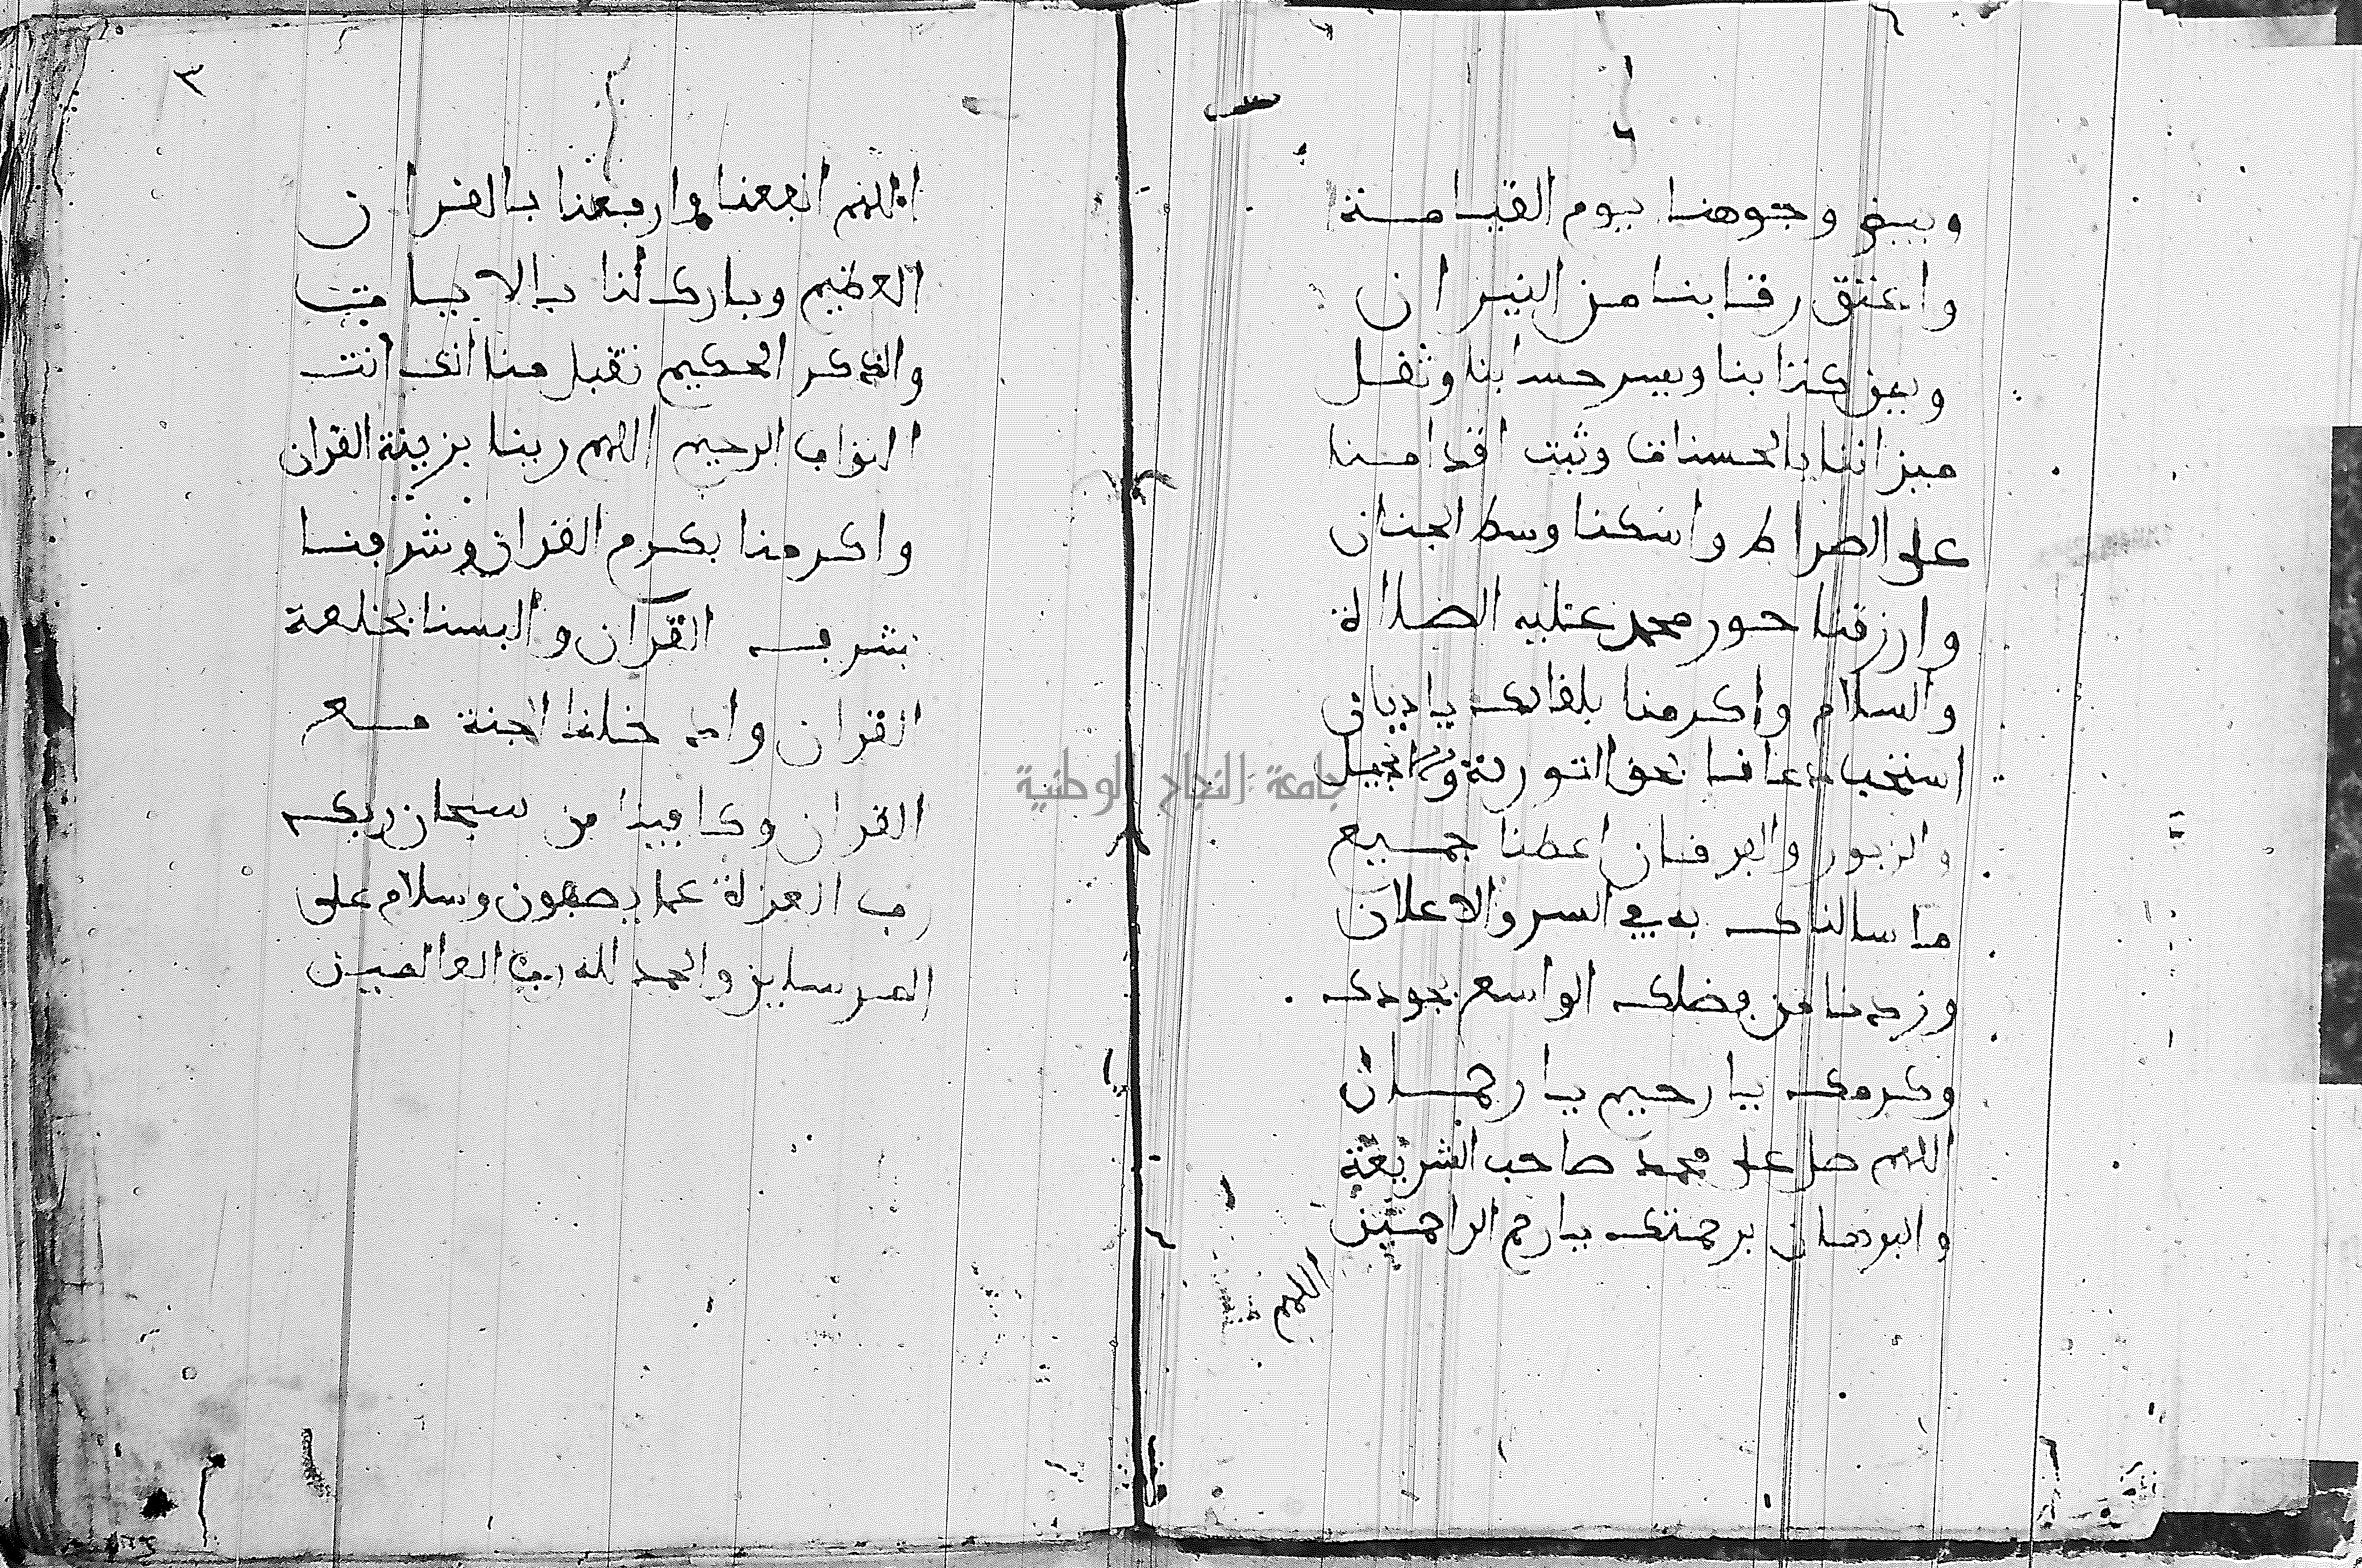 وبيض وجوهنا يوم القيامة
واعتق رقابنا من النيران
ويمن كتابنا ويسر حسابنا وثقل
ميزاننا بالحسنات وثبت اقدامنا
على الصراط واسكنا وسط الجنان
وارزقنا حور محمد عليه الصلاة
والسلام واكرمنا بلقائك يا ديان
استجب دعانا بحق التورية والانجيل
والزبور والفرقان اعطنا جميع
ما سالناك به في السر والاعلان
وزدنا من فضلك الواسع بجودك
وكرمك يا رحيم يا رحمان
اللهم صل على محمد صاحب الشريعة
والبرهان برحمتك يارحم الراحمين
اللهم
٣
اللهم انفعنا وارفعنا بالقران
العظيم وبارك لنا بالايات
والذكر الحكيم تقبل منا انك انت
التواب الرحيم اللهم زينا بزينة القران
واكرمنا بكرم القران وشرفنا
بشرف القرآن والبسنا بخلعة
القران وادخلنا الجنة مع
القران من سبحان ربك
رب العزة عما يصفون وسلام على
المرسلين والحمد لله رب العالمين
جامعة النجاح الوطنية